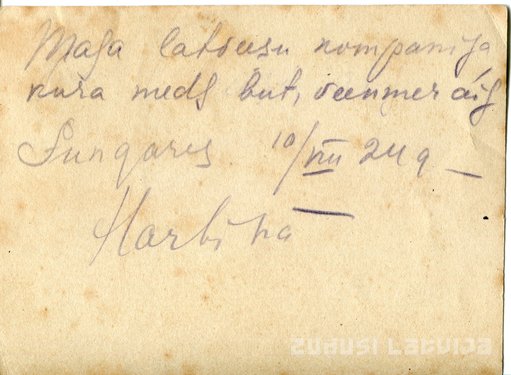 Maza latveešu kompanija
kura medz but, veenmer aiz
Sungares 10/VIII 24 g
Harbinā
zudusi Latvija